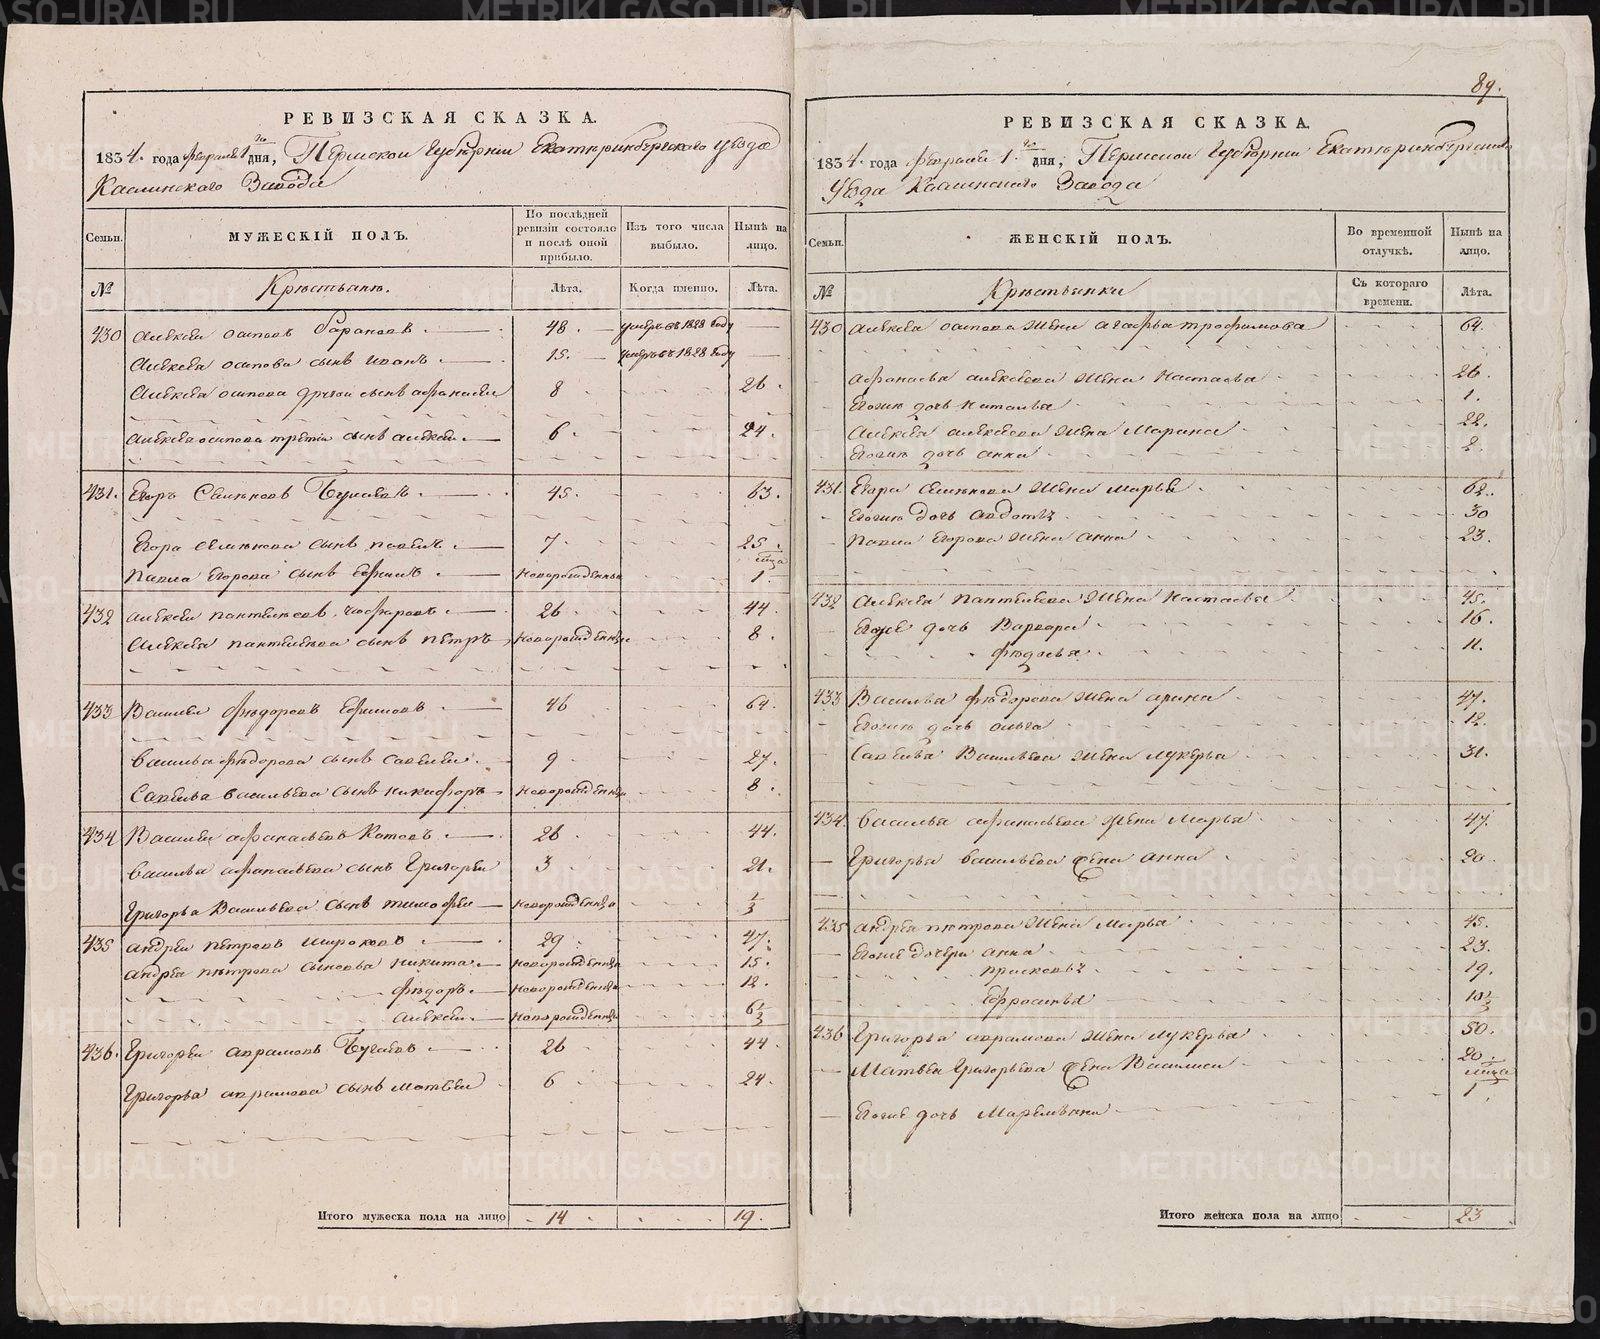 РЕВИЗСКАЯ СКАЗКА.
1834 года февраля 1 го дня, Пермской Губернии Екатеринбургского уезда
Каслинского Завода
Семьи. МУЖЕСКІЙ ПОЛЪ. По послѣдней ревизіи состояло и послѣ оной прибыло. Изъ того числа выбыло. Нынѣ на лицо.
№ Крестьяне. Лѣта. Когда именно. Лѣта.
430 Алексеи осиповъ 48. умеръ въ 1828 году
Алексея осипова сынъ иванъ 15. умеръ въ 1828 году
Алексея осипова другои сынъ афонасеи 8 26.
Алексея осипова третіи сынъ алексеи. 6. 24.
431. Егоръ Семеновъ 45. 63.
Егора семенова сынъ павелъ. 7. 25.
Павла Егорова сынъ ефимъ. новорожденныи мца 1
432 алексеи пантелеевъ 26. 44.
Алексея пантелеева сынъ петръ новорожденныи 8.
433 Василеи федоровъ Ефимовъ 46 64.
василья федорова сынъ савелеи. 9. 27.
Савелья васильева сынъ никифоръ новорожденныи 8.
434 Василеи афонасьевъ Котовъ 26. 44.
василья афонасьева сынъ Григореи 3 21.
Григорья Васильева сынъ тимофеи новорожденныи 1/3
435 андреи петровъ широковъ 29. 47.
андрея петрова сыновья никита. новорожденныи 15.
федоръ. новорожденныи 12.
алексеи. новорожденныи 6 1/3
436. Григореи аврамовъ 26 44.
Григорья аврамова сынъ матвеи 6. 24.
Итого мужеска пола на лицо 14 19.
89.
РЕВИЗСКАЯ СКАЗКА.
1834 года февраля 1. го дня, Пермской Губернии Екатеринбургского
Уезда Каслинского Завода
Семьи. ЖЕНСКІЙ ПОЛЪ. Во временной отлучкѣ. Нынѣ на лицо.
№ Крестьянки Съ котораго времени. Лѣта.
430 алексея осипова жена агафья трофимова 64.
афонасья алексеева жена настасья 26.
Егожъ дочь наталья 1.
Алексея алексеева жена Марина 22.
Егожъ дочь анна 2.
431. Егора семенова жена марья 62.
Егожъ дочь авдотья 30
Павла Егорова жена анна 23.
432 Алексея Пантелеева жена настасья 45.
Егоже дочь Варвара 16.
федосья 11.
433 Василья федорова жена арина 47.
Егожъ дочь ольга 12.
Савелья Васильева жена лукерья 31.
434. василья афонасьева жена Марья 47.
Григорья васильева жена анна 20.
435 андрея петрова жена Марья 45.
Егоже дочери анна 23.
прасковья 19.
Ефросинья 10 1/3
436 Григорья аврамова жена лукерья 50.
Матвея Григорьева жена Василиса 20.
Егоже дочь Маремьяна мца 1
Итого женска пола на лицо 23